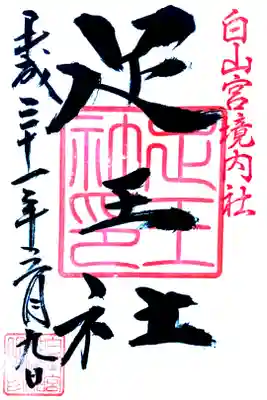 白山宮境内社
足王社
足王神印
平成三十一年月九日